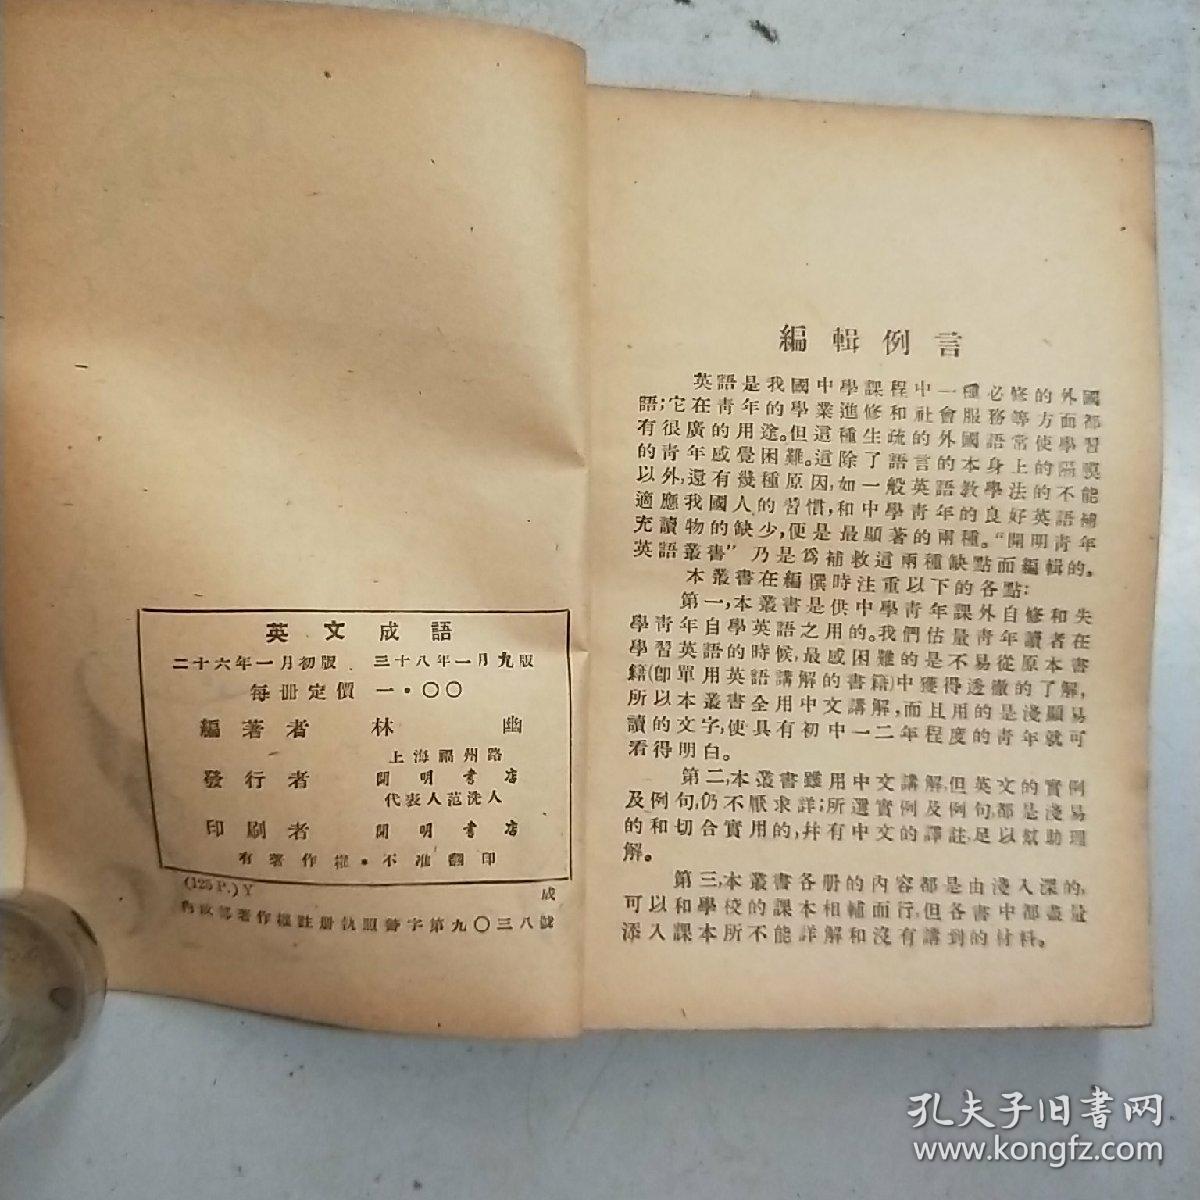 英文成語
二十六年一月初版 三十八年一月九版
每册定價 一·〇〇
編著者 林幽
上海福州路
發行者 開明書店
代表人范洗人
印刷者 開明書店
有著作權·不准翻印
(125 P.) Y 成
內政部著作權註册執照警字第九〇三八號
編輯例言
英語是我國中學課程中一種必修的外國
語;它在靑年的學業進修和社會服務等方面都
有很廣的用途。但這種生疏的外國語常使學習
的靑年感覺困難。這除了語言的本身上的隔膜
以外,還有幾種原因,如一般英語敎學法的不能
適應我國人的習慣,和中學靑年的良好英語補
充讀物的缺少,便是最顯著的兩種。“開明靑年
英語叢書”乃是爲補救這兩種缺點而編輯的。
本叢書在編撰時注重以下的各點:
第一,本叢書是供中學靑年課外自修和失
學靑年自學英語之用的。我們估量靑年讀者在
學習英語的時候,最感困難的是不易從原本書
籍(卽單用英語講解的書籍)中獲得透徹的了解,
所以本叢書全用中文講解,而且用的是淺顯易
讀的文字,使具有初中一二年程度的靑年就可
看得明白。
第二,本叢書雖用中文講解,但英文的實例
及例句,仍不厭求詳;所選實例及例句,都是淺易
的和切合實用的,幷有中文的譯註,足以幫助理
解。
第三,本叢書各册的內容都是由淺入深的,
可以和學校的課本相輔而行,但各書中都盡量
添入課本所不能詳解和沒有講到的材料。
孔夫子旧書网
www.kongfz.com